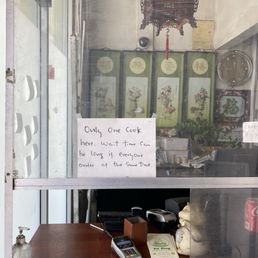 Only one cook
here. Wait time can
be long if everyone
order at the same time.